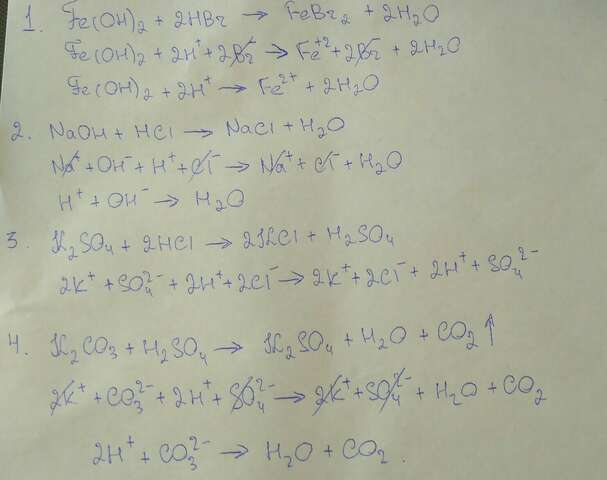 1. Fe(OH)₂ + 2HBr → FeBr₂ + 2H₂O
Fe(OH)₂ + 2H⁺ + 2Br⁻ → Fe⁺² + 2Br⁻ + 2H₂O
Fe(OH)₂ + 2H⁺ → Fe²⁺ + 2H₂O
2. NaOH + HCl → NaCl + H₂O
Na⁺ + OH⁻ + H⁺ + Cl⁻ → Na⁺ + Cl⁻ + H₂O
H⁺ + OH⁻ → H₂O
3. K₂SO₄ + 2HCl → 2KCl + H₂SO₄
2K⁺ + SO₄²⁻ + 2H⁺ + 2Cl⁻ → 2K⁺ + 2Cl⁻ + 2H⁺ + SO₄²⁻
4. K₂CO₃ + H₂SO₄ → K₂SO₄ + H₂O + CO₂↑
2K⁺ + CO₃²⁻ + 2H⁺ + SO₄²⁻ → 2K⁺ + SO₄²⁻ + H₂O + CO₂
2H⁺ + CO₃²⁻ → H₂O + CO₂.